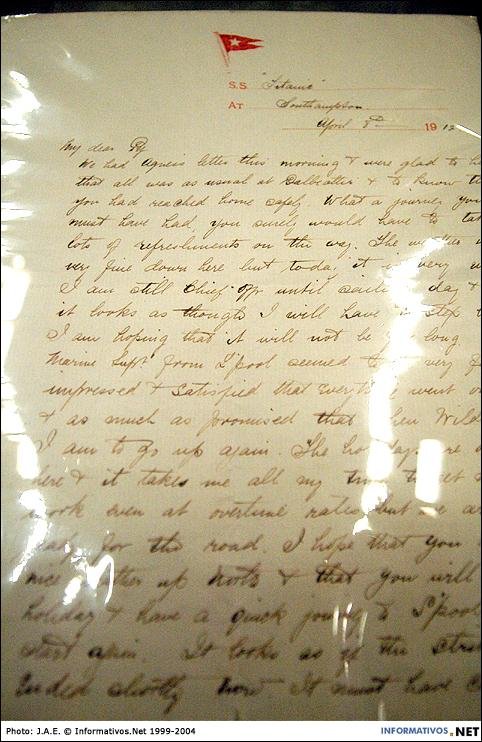 S.S. "Titanic"
AT Southampton.
April 8th 1912
My dear
We had Agnes letter this morning & were glad to
that all was as usual at Dalbeattie & to know
you had reached home safely. What a journey you
must have had, you surely would have to
lots of refreshments on the way. The weather
very fine down here but today it is very
I am still Chief Offr until sailing day &
it looks as though I will have to step
I am hoping that it will not be for long
Marine Supt from L'pool seemed to very
impressed & satisfied that everything went
& as much as promised that when Wilde
I am to go up again. The holidays are
here & it takes me all my time to get
work even at overtime rates but we are
ready for the road. I hope that you
nice up North & that you will
holiday & have a quick journey to L'pool
start again. It looks as if the
ended shortly now It must have
Photo: J.A.E. © Informativos.Net 1999-2004
INFORMATIVOS.NET